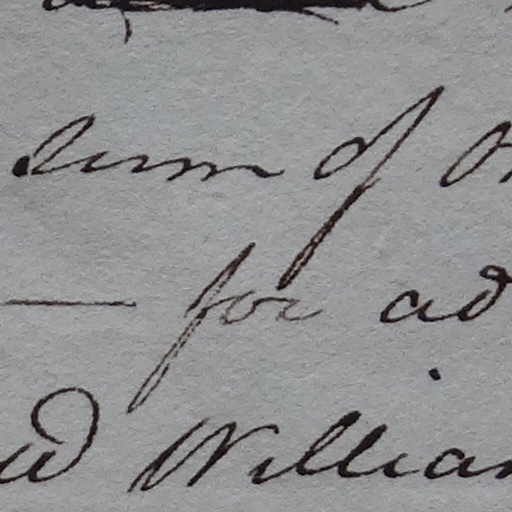 sum of
— for ad
William